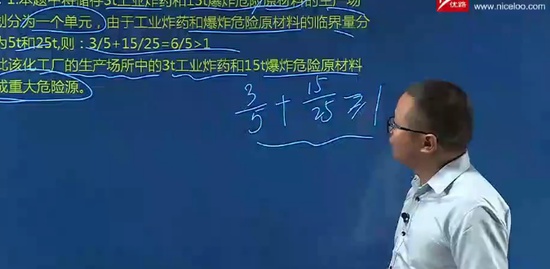 优路 www.niceloo.com
1.本题中将储存3t工业炸药和15t爆炸危险原材料的生产场
划分为一个单元，由于工业炸药和爆炸危险原材料的临界量分
为5t和25t,则：3/5+15/25=6/5>1
比该化工厂的生产场所中的3t工业炸药和15t爆炸危险原材料
成重大危险源。
3/5 + 15/25 ≥ 1